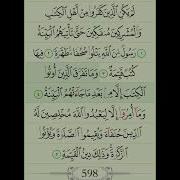 لَمْ يَكُنِ الَّذِينَ كَفَرُوا مِنْ أَهْلِ الْكِتَٰبِ
وَالْمُشْرِكِينَ مُنفَكِّينَ حَتَّىٰ تَأْتِيَهُمُ الْبَيِّنَةُ
١ رَسُولٌ مِّنَ اللَّهِ يَتْلُوا صُحُفًا مُّطَهَّرَةً ٢ فِيهَا
كُتُبٌ قَيِّمَةٌ ٣ وَمَا تَفَرَّقَ الَّذِينَ أُوتُوا
الْكِتَٰبَ إِلَّا مِن بَعْدِ مَا جَاءَتْهُمُ الْبَيِّنَةُ ٤
وَمَا أُمِرُوا إِلَّا لِيَعْبُدُوا اللَّهَ مُخْلِصِينَ لَهُ
الدِّينَ حُنَفَاءَ وَيُقِيمُوا الصَّلَوٰةَ وَيُؤْتُوا
الزَّكَوٰةَ وَذَٰلِكَ دِينُ الْقَيِّمَةِ ٥
598